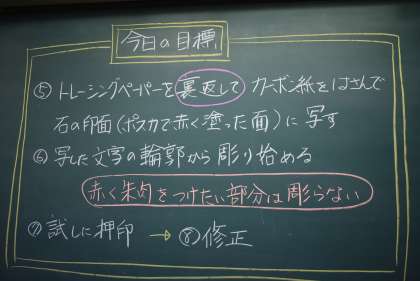 今日の目標
⑤ トレーシングペーパーを裏返して カーボン紙をはさんで
石の印面(ポスカで赤く塗った面)に写す
⑥ 写した文字の輪郭から彫り始める
赤く朱肉をつけたい部分は彫らない
⑦ 試しに押印 → ⑧ 修正